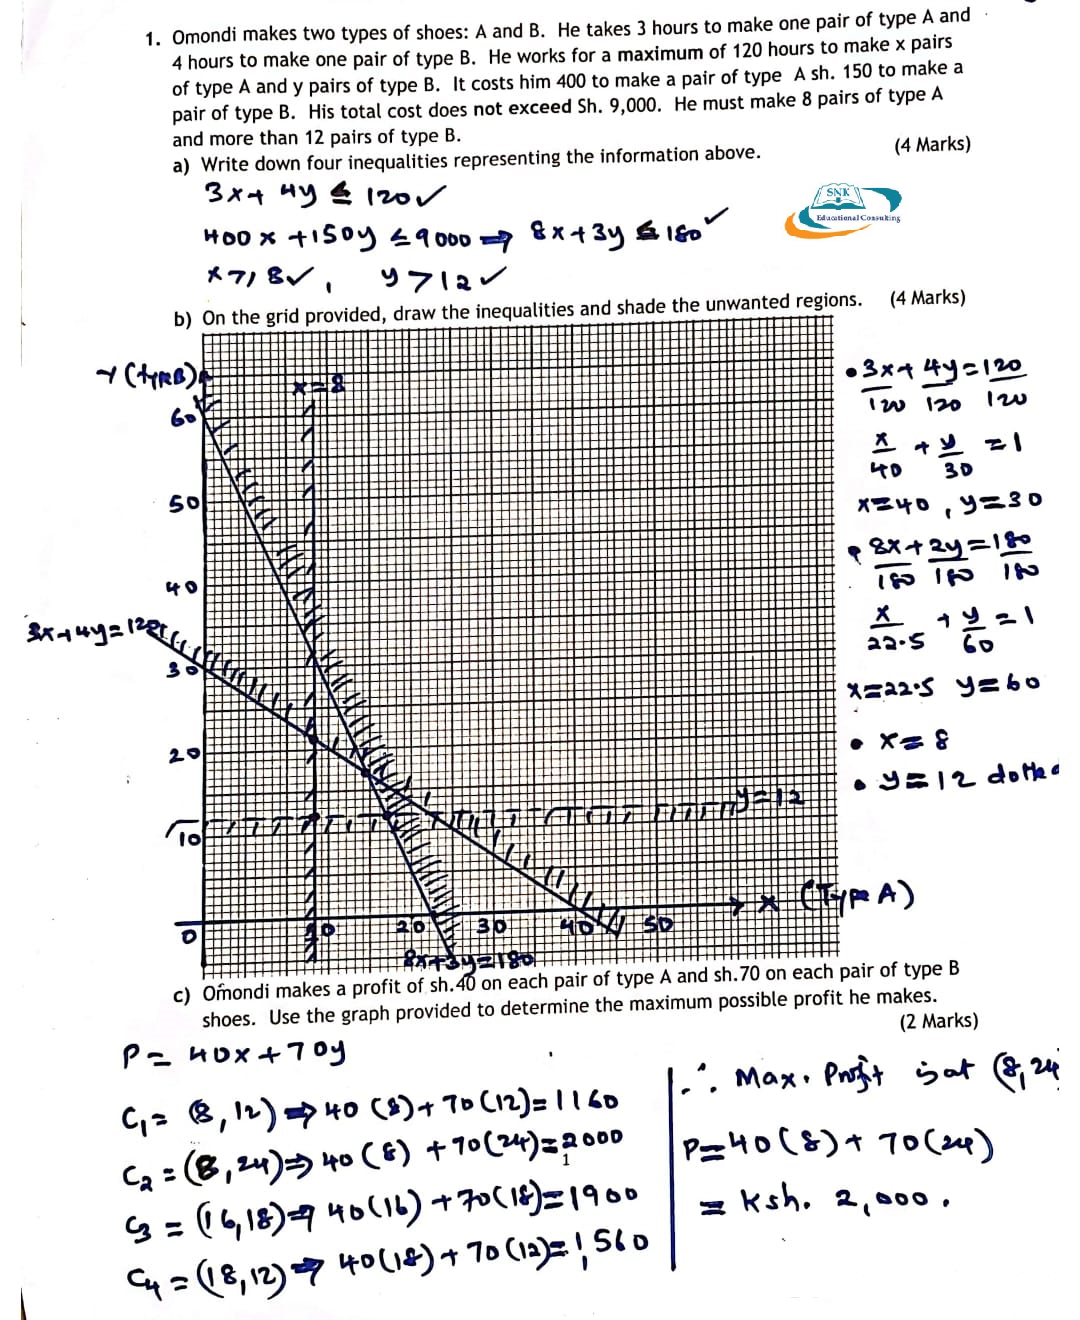 1. Omondi makes two types of shoes: A and B. He takes 3 hours to make one pair of type A and
4 hours to make one pair of type B. He works for a maximum of 120 hours to make x pairs
of type A and y pairs of type B. It costs him 400 to make a pair of type A sh. 150 to make a
pair of type B. His total cost does not exceed Sh. 9,000. He must make 8 pairs of type A
and more than 12 pairs of type B.
a) Write down four inequalities representing the information above. (4 Marks)
3x + 4y ≤ 120 ✓
SNK
Educational Consulting
400x + 150y ≤ 9000 ⇒ 8x + 3y ≤ 180 ✓
x ≥ 8 ✓, y > 12 ✓
b) On the grid provided, draw the inequalities and shade the unwanted regions. (4 Marks)
Y (type B)
x = 8
60
50
40
3x + 4y = 120
30
20
10
y = 12
0
10 20 30 40 50
x (Type A)
8x + 3y = 180
• 3x + 4y = 120
120 120 120
x/40 + y/30 = 1
x = 40, y = 30
• 8x + 2y = 180
180 180 180
x/22.5 + y/60 = 1
x = 22.5 y = 60
• x = 8
• y = 12 dotted
c) Omondi makes a profit of sh.40 on each pair of type A and sh.70 on each pair of type B
shoes. Use the graph provided to determine the maximum possible profit he makes.
(2 Marks)
P = 40x + 70y
C₁ = (8, 12) ⇒ 40(8) + 70(12) = 1160
C₂ = (8, 24) ⇒ 40(8) + 70(24) = 2000
1
C₃ = (16, 18) ⇒ 40(16) + 70(18) = 1900
C₄ = (18, 12) ⇒ 40(18) + 70(12) = 1,560
∴ Max. Profit is at (8, 24
P = 40(8) + 70(24)
= Ksh. 2,000.